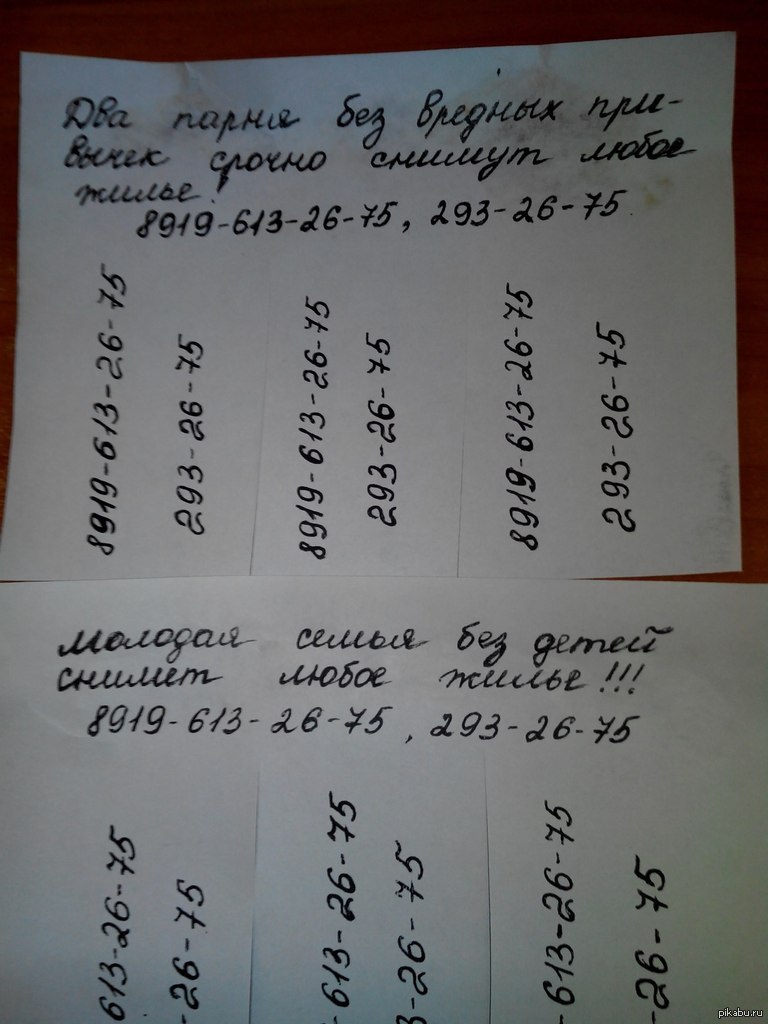 Два парня без вредных при-
вычек срочно снимут любое
жилье!
8919-613-26-75, 293-26-75.
8919-613-26-75
293-26-75
8919-613-26-75
293-26-75
8919-613-26-75
293-26-75
молодая семья без детей
снимет любое жилье!!!
8919-613-26-75, 293-26-75
613-26-75
-26-75
-613-26-75
3-26-75
-613-26-75
-26-75
pikabu.ru